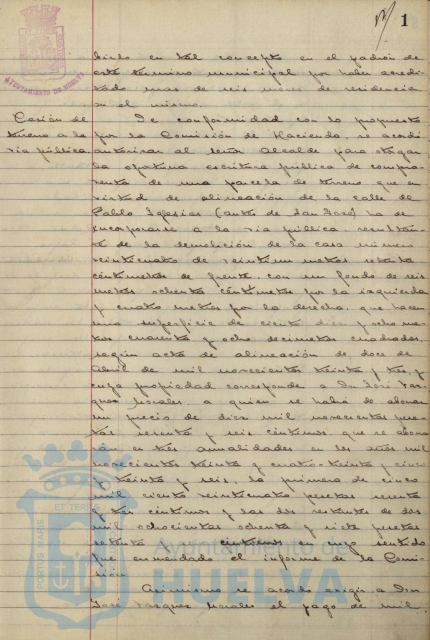 1
AYUNTAMIENTO DE HUELVA
birlo en tal concepto en el padrón de
este término municipal por haber acredi-
tado mas de seis meses de residencia
en el mismo.
Cesión de
terreno a la
via pública
De conformidad con lo propuesto
por la Comisión de Hacienda, se acordó
autorizar al señor Alcalde para otorgar
la oportuna escritura pública de compra
venta de una parcela de terreno que en
virtud de alineación de la calle de
Pablo Iglesias (antes de San José) ha de
incorporarse a la via pública, resultan-
te de la demolición de la casa número
veinticuatro de veintiun metros setenta
centímetros de frente, con un fondo de seis
metros ochenta centímetros por la izquierda
y cuatro metros por la derecha, que hacen
una superficie de ciento diez y ocho me-
tros cuarenta y ocho decimetros cuadrados,
según acta de alineación de doce de
Abril de mil novecientos treinta y tres, y
cuya propiedad corresponde a Don José Vaz-
quez Morales a quien se habrá de abonar
un precio de diez mil novecientas pese-
tas sesenta y seis céntimos, que se abona-
rán en tres anualidades en los años mil
novecientos treinta y cuatro, treinta y cinco
y treinta y seis, la primera de cinco
mil ciento veinticuatro pesetas sesenta
y tres céntimos y las dos restantes de dos
mil ochocientas ochenta y siete pesetas
setenta céntimos en cuyo sentido
fué enmendado el informe de la Comi-
sión.
Asimismo se acordó exigir a Don
José Vazquez Morales el pago de mil
PORTUS MARIS ET TERRAE
Ayuntamiento de
HUELVA